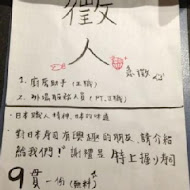 徵
人
急徵
1. 廚房助手(正職)
2. 外場服務人員(PT.正職)
·日本職人精神,味的傳達
·對日本壽司有興趣的朋友,請介紹
給我們!謝禮是特上握り寿司
9貫一份(無料)